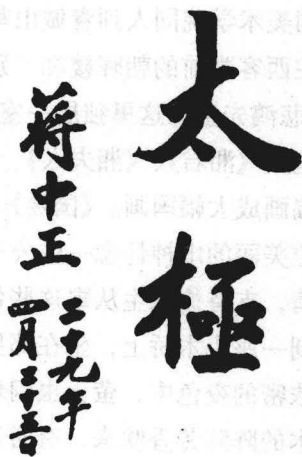 太極
蔣中正
二十九年
四月二十五日